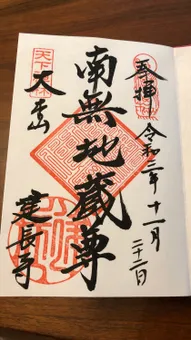 奉拝 令和三年十一月
二十二日
南無地蔵尊
天下禅林
大本山
建長寺